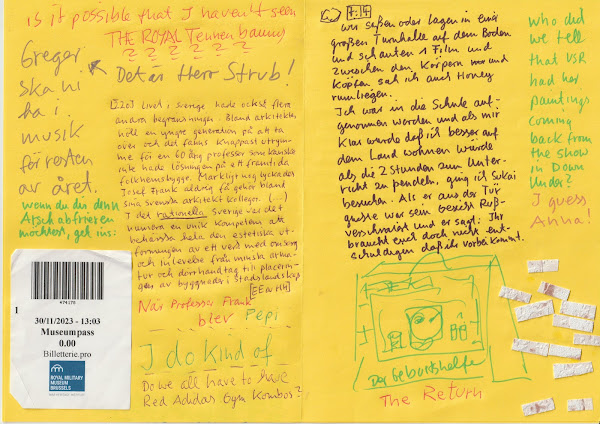 is it possible that I haven't seen
THE ROYAL Tenenbaums
? ? ? ? ? ?
Greger
ska ni
ha i
musik
för resten
av året.
Det är Herr Strub!
wenn du dir den
Atsch abfrieren
möchtest, get ins:
474178
1
30/11/2023 - 13:03
Museumpass
0.00
Billetterie.pro
ROYAL MILITARY
MUSEUM
BRUSSELS
[120] Livet i Sverige hade också flera
andra begränsningar. Bland arkitekter
höll en yngre generation på att ta
över och det fanns knappast utrymme
för en 60 årig professor som kanske
inte hade lösningen på ett framtida
folkhemsbygge. Märkligt nog lyckades
Josef Frank aldrig få gehör bland
sina svenska arkitekt kolleger. (...)
I det rationella Sverige var det
numera en unik kompetens att
behärska hela den estetiska
utformningen av ett verk med omsorg
och inlevelse från minsta
och dörrhandtag till
av byggnader i stadslandskap
När Professor Frank
blev Pepi
I do kind of
Do we all have to have
Red Adidas Gym Kombos?
7.14
wir saßen oder lagen in einer
großen Turnhalle auf dem Boden
und schauten 1 Film und
zwischen den Körpern und
Köpfen sah ich auch Honey
rumliegen.
Ich war in die Schule auf-
genommen worden und als mir
klar wurde daß ich besser auf
dem Land wohnen würde
als die 2 Stunden zum Unter-
richt zu pendeln, ging ich Sukai
besuchen. Als er aus der Tür
war sein Gesicht Ruß-
verschmiert und er sagt: Ihr
braucht euch doch nicht ent-
schuldigen daß ihr vorbei kommt.
Der Geburtshelfe
The Return
Who did
we tell
that VSR
had her
paintings
coming
back from
the show
in Down
Under?
I guess
Anna!